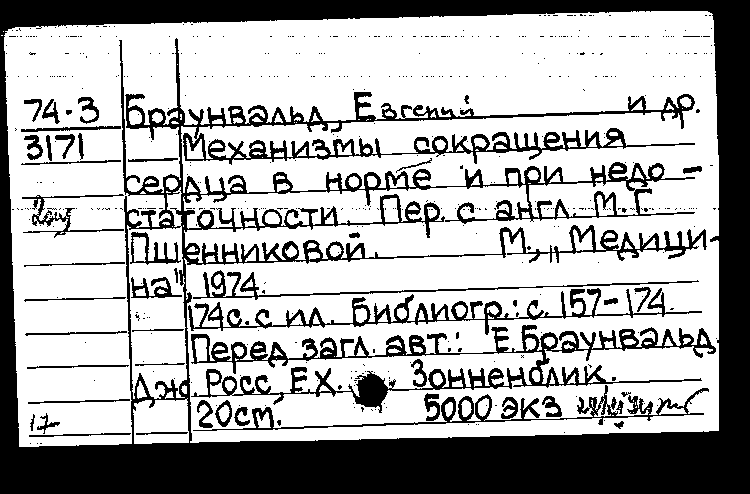 74-3 Браунвальд, Евгений и др.
3171 Механизмы сокращения
сердца в норме и при недо-
2 статочности. Пер. с англ. М.Г.
Пшенниковой. М., „Медици-
на", 1974.
174с. с ил. Библиогр.: с. 157-174.
Перед загл. авт.: Е. Браунвальд,
Дж. Росс, Е.Х. Зонненблик.
17- 20см. 5000 экз